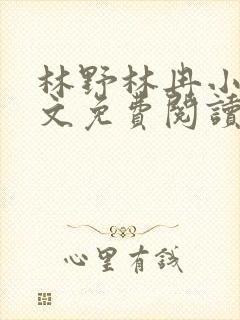 林野林冉小
文免費閱讀
心里有錢